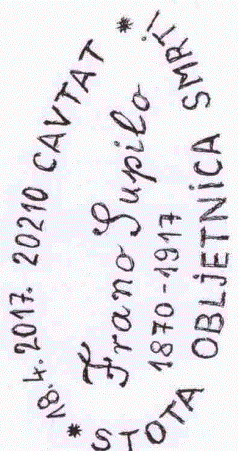 18.4.2017. 20210 CAVTAT
Frano Supilo
1870-1917
STOTA OBLJETNICA SMRTI